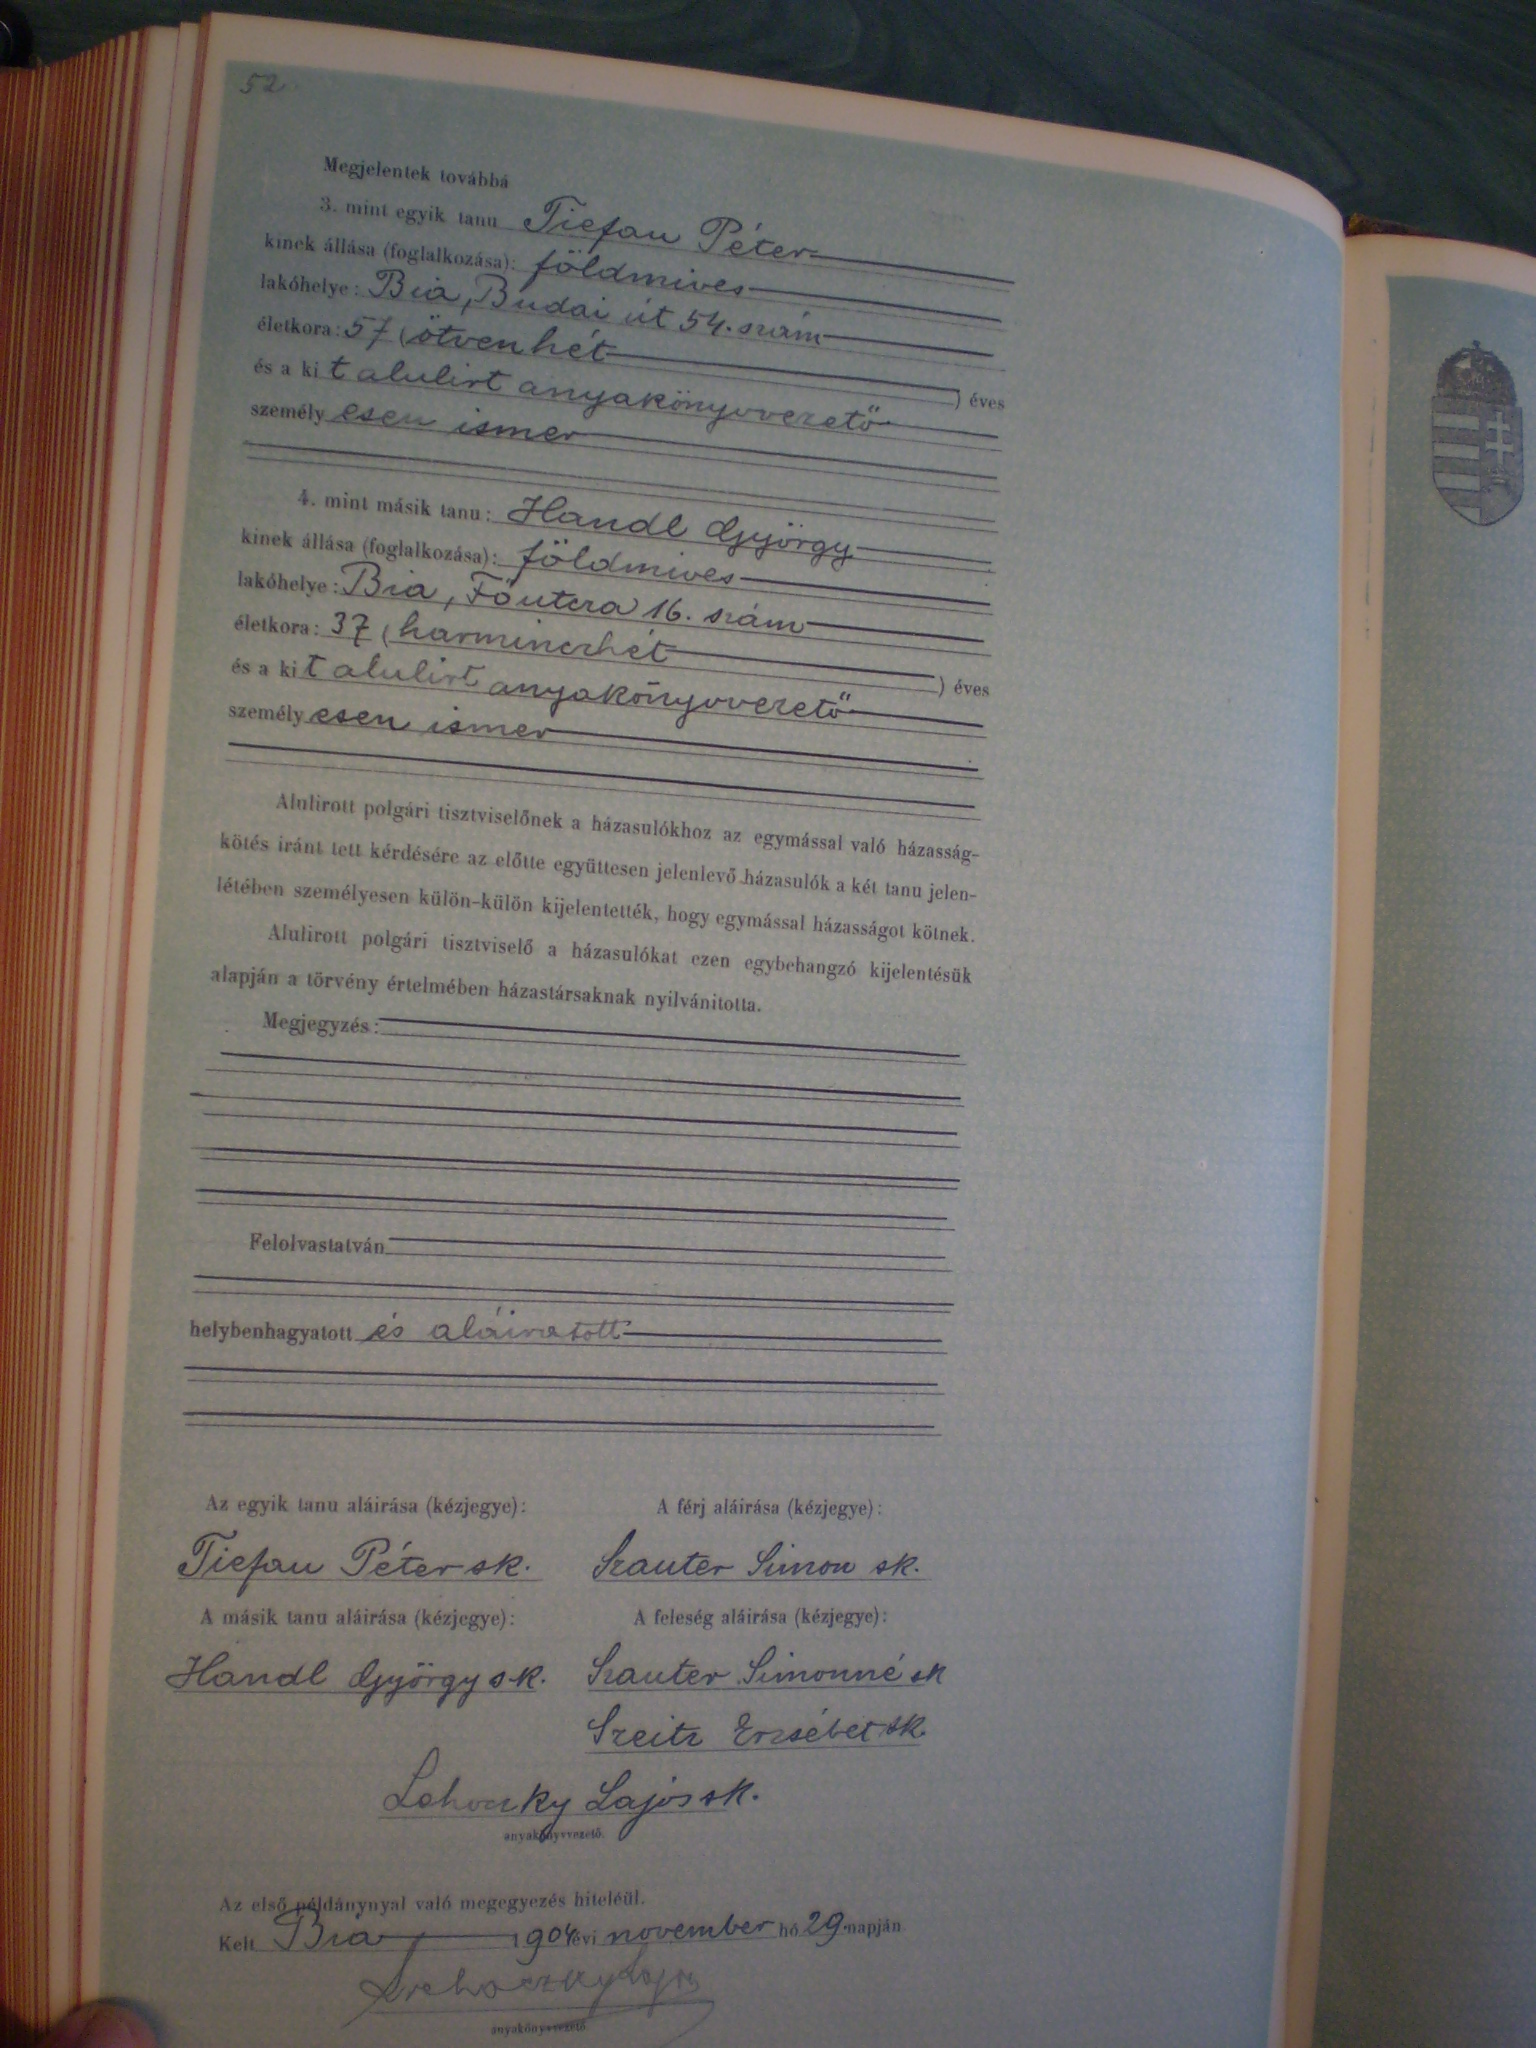 52
Megjelentek továbbá
3. mint egyik tanu Tiefau Péter
kinek állása (foglalkozása): földmives
lakóhelye: Bia, Budai út 54. szám
életkora: 57 (ötvenhét ) éves
és a ki t alulirt anyakönyvvezető
személy esen ismer
4. mint másik tanu: Handl György
kinek állása (foglalkozása): földmives
lakóhelye: Bia, Főutcza 16. szám
életkora: 37 (harminczhét ) éves
és a ki t alulirt anyakönyvvezető
személy esen ismer
Alulirott polgári tisztviselőnek a házasulókhoz az egymással való házasság-
kötés iránt tett kérdésére az előtte együttesen jelenlevő házasulók a két tanu jelen-
létében személyesen külön-külön kijelentették, hogy egymással házasságot kötnek.
Alulirott polgári tisztviselő a házasulókat ezen egybehangzó kijelentésük
alapján a törvény értelmében házastársaknak nyilvánitotta.
Megjegyzés:
Felolvastatván
helybenhagyatott és aláiratott
Az egyik tanu aláirása (kézjegye): A férj aláirása (kézjegye):
Tiefau Péter sk. Szauter Simon sk.
A másik tanu aláirása (kézjegye): A feleség aláirása (kézjegye):
Handl György sk. Szauter Simonné sk
Szeitz Erzsébet sk.
Lehoczky Lajos sk.
anyakönyvvezető.
Az első példánynyal való megegyezés hiteléül.
Kelt Bia 1904 évi november hó 29. napján
Lehoczky Lajos
anyakönyvvezető.